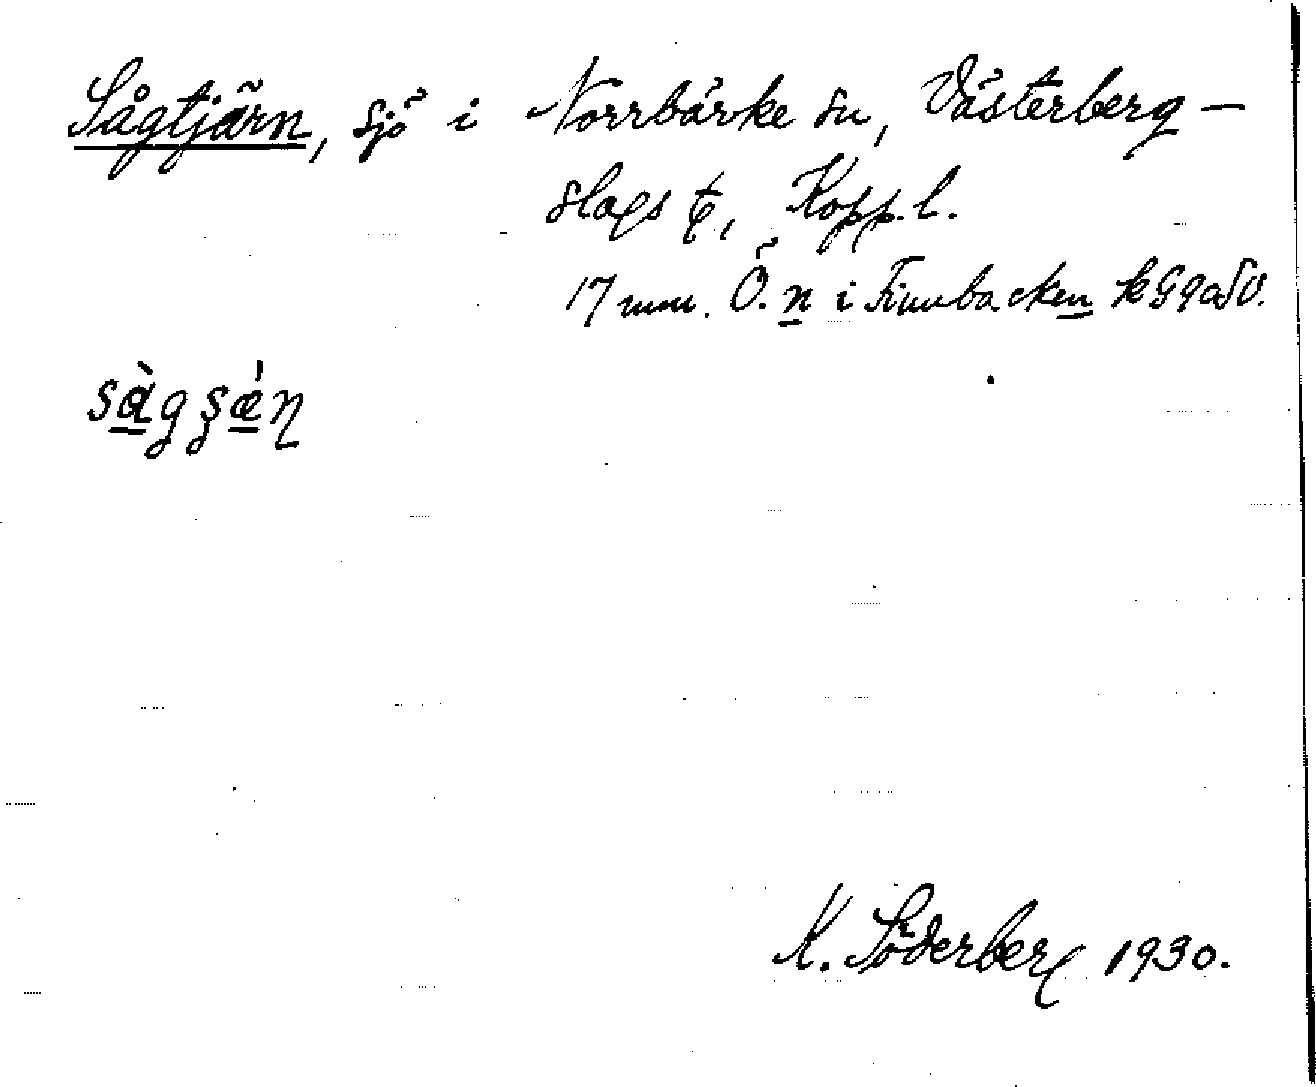 Sågtjärn, sjö i Norrbärke sn, Västerberg-
slags tg, Kopp. l.
17 mm. Ö. n i Finnbacken k G9a SV.
sàgʂǽn
K. Söderberg 1930.